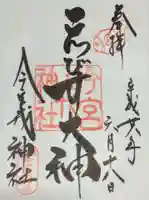 奉拝
平成廿八年
六月十八日
えびす大神
今宮戎神社